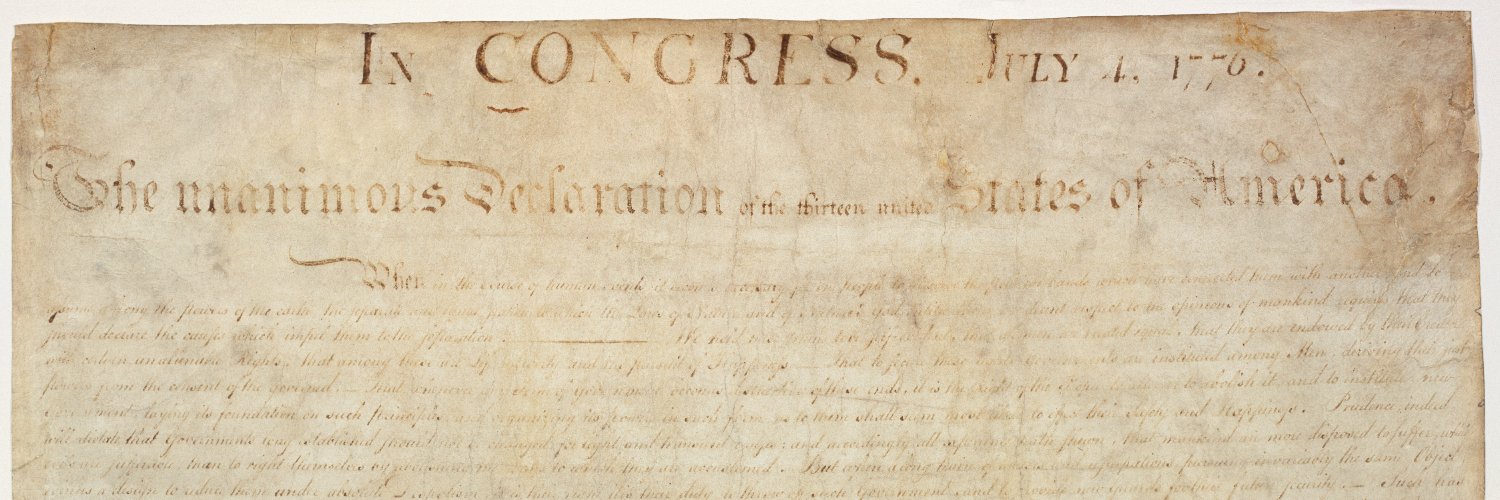 In CONGRESS. July 4, 1776.
The unanimous Declaration of the thirteen united States of America.
When in the Course of human events it becomes necessary for one people to dissolve the political bands which have connected them with another, and to
assume among the powers of the earth, the separate and equal station to which the Laws of Nature and of Nature's God entitle them, a decent respect to the opinions of mankind requires that they
should declare the causes which impel them to the separation. We hold these truths to be self-evident, that all men are created equal, that they are endowed by their Creator
with certain unalienable Rights, that among these are Life, Liberty and the pursuit of Happiness. — That to secure these rights, Governments are instituted among Men, deriving their just
powers from the consent of the governed, — That whenever any Form of Government becomes destructive of these ends, it is the Right of the People to alter or to abolish it, and to institute new
Government, laying its foundation on such principles and organizing its powers in such form, as to them shall seem most likely to effect their Safety and Happiness. Prudence, indeed,
will dictate that Governments long established should not be changed for light and transient causes; and accordingly all experience hath shewn, that mankind are more disposed to suffer, while
evils are sufferable, than to right themselves by abolishing the forms to which they are accustomed. But when a long train of abuses and usurpations, pursuing invariably the same Object
evinces a design to reduce them under absolute Despotism, it is their right, it is their duty, to throw off such Government, and to provide new Guards for their future security. — Such has